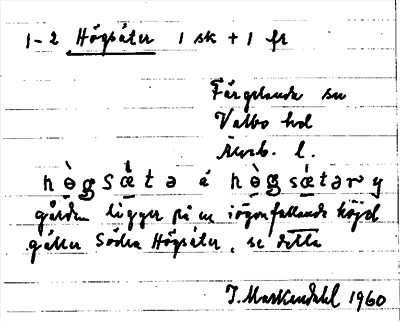 1-2 Högsäter 1 sk + 1 fr
Färgelanda sn
Valbo hd
Älvsb. l.
hø̀gsǽtə á hø̀gsǽtərn
gården ligger på en iögonfallande höjd
gäller Södra Högsäter, se detta
J. Markendahl 1960